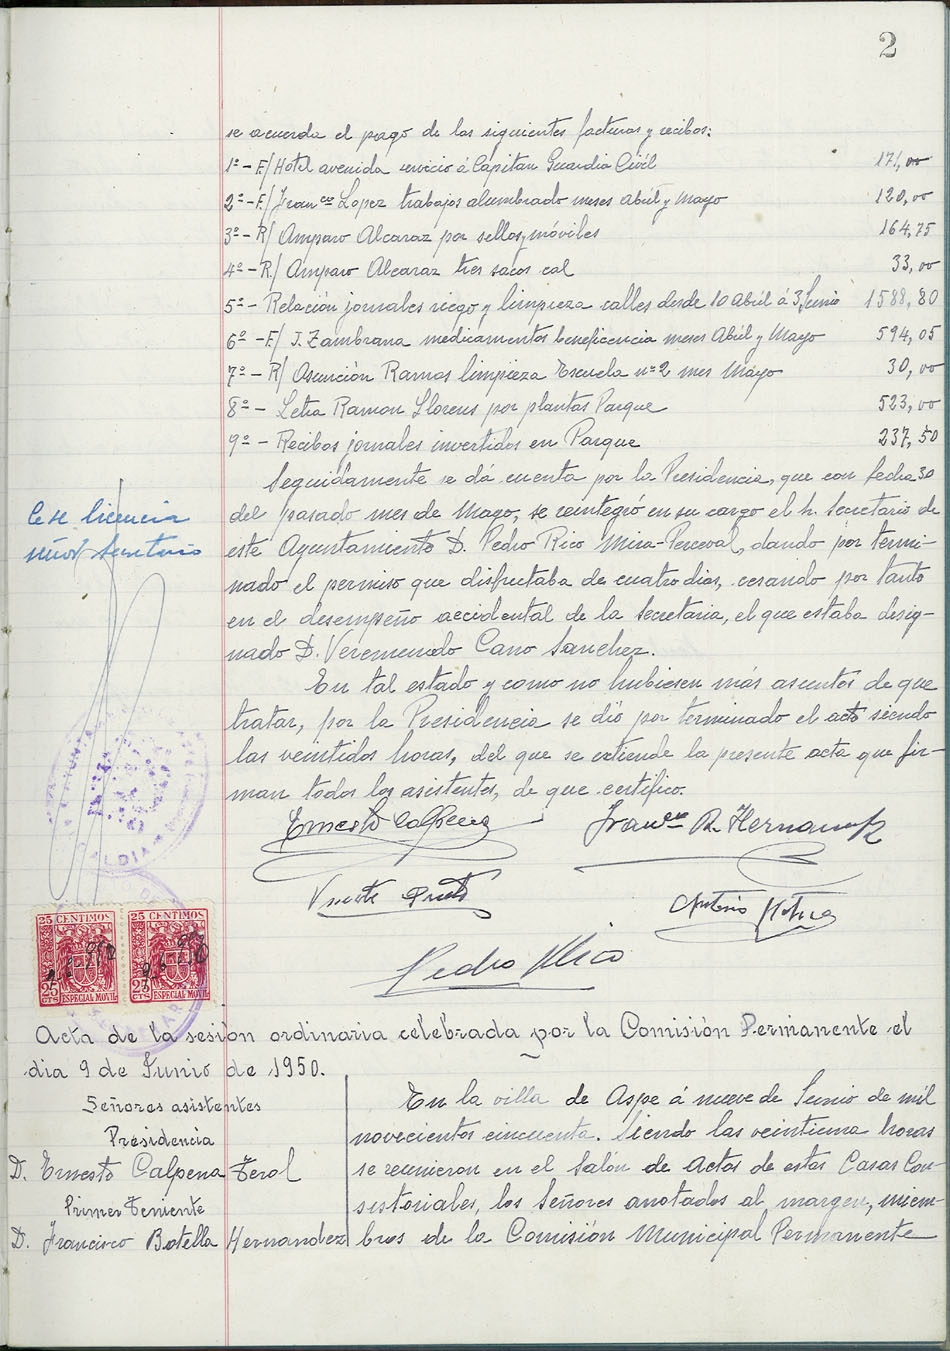 2
se acuerda el pago de las siguientes facturas y recibos:
1º - F/ Hotel avenida servicio á Capitan Guardia Civil 171,00
2º - F/ Franco Lopez trabajos alumbrado meses Abril y Mayo 120,00
3º - R/ Amparo Alcaraz por sellos y móviles 164,75
4º - R/ Amparo Alcaraz tres sacos cal 33,00
5º - Relación jornales riego y limpieza calles desde 10 Abril á 3 Junio 1588,80
6º - F/ J. Zambrana medicamentos beneficencia meses Abril y Mayo 594,05
7º - R/ Asunción Ramos limpieza Escuela nº 2 mes Mayo 30,00
8º - Letra Ramon Llorens por plantas Parque 523,00
9º - Recibos jornales invertidos en Parque 237,50
Seguidamente se dá cuenta por la Presidencia, que con fecha 30
del pasado mes de Mayo, se reintegró en su cargo el Sr. Secretario de
este Ayuntamiento D. Pedro Rico Mira-Perceval, dando por termi-
nado el permiso que disfrutaba de cuatro dias, cesando por tanto
en el desempeño accidental de la Secretaria, el que estaba desig-
nado D. Veremundo Cano Sanchez.
Cese licencia
señor Secretario
En tal estado y como no hubiesen más asuntos de que
tratar, por la Presidencia se dió por terminado el acto siendo
las veintidos horas, del que se extiende la presente acta que fir-
man todos los asistentes, de que certifico.
Ernesto Calpena
Franco B. Hernandez
Vicente
Antonio
Pedro Rico
25 CENTIMOS 25 CENTIMOS
25 CTS ESPECIAL MOVIL 25 CTS ESPECIAL MOVIL
Acta de la sesión ordinaria celebrada por la Comisión Permanente el
dia 9 de Junio de 1950.
Señores asistentes
Presidencia
D. Ernesto Calpena Terol
Primer Teniente
D. Francisco Botella Hernandez
En la villa de Aspe á nueve de Junio de mil
novecientos cincuenta. Siendo las veintiuna horas
se reunieron en el Salón de Actos de estas Casas Con-
sistoriales, los Señores anotados al margen, miem-
bros de la Comisión Municipal Permanente